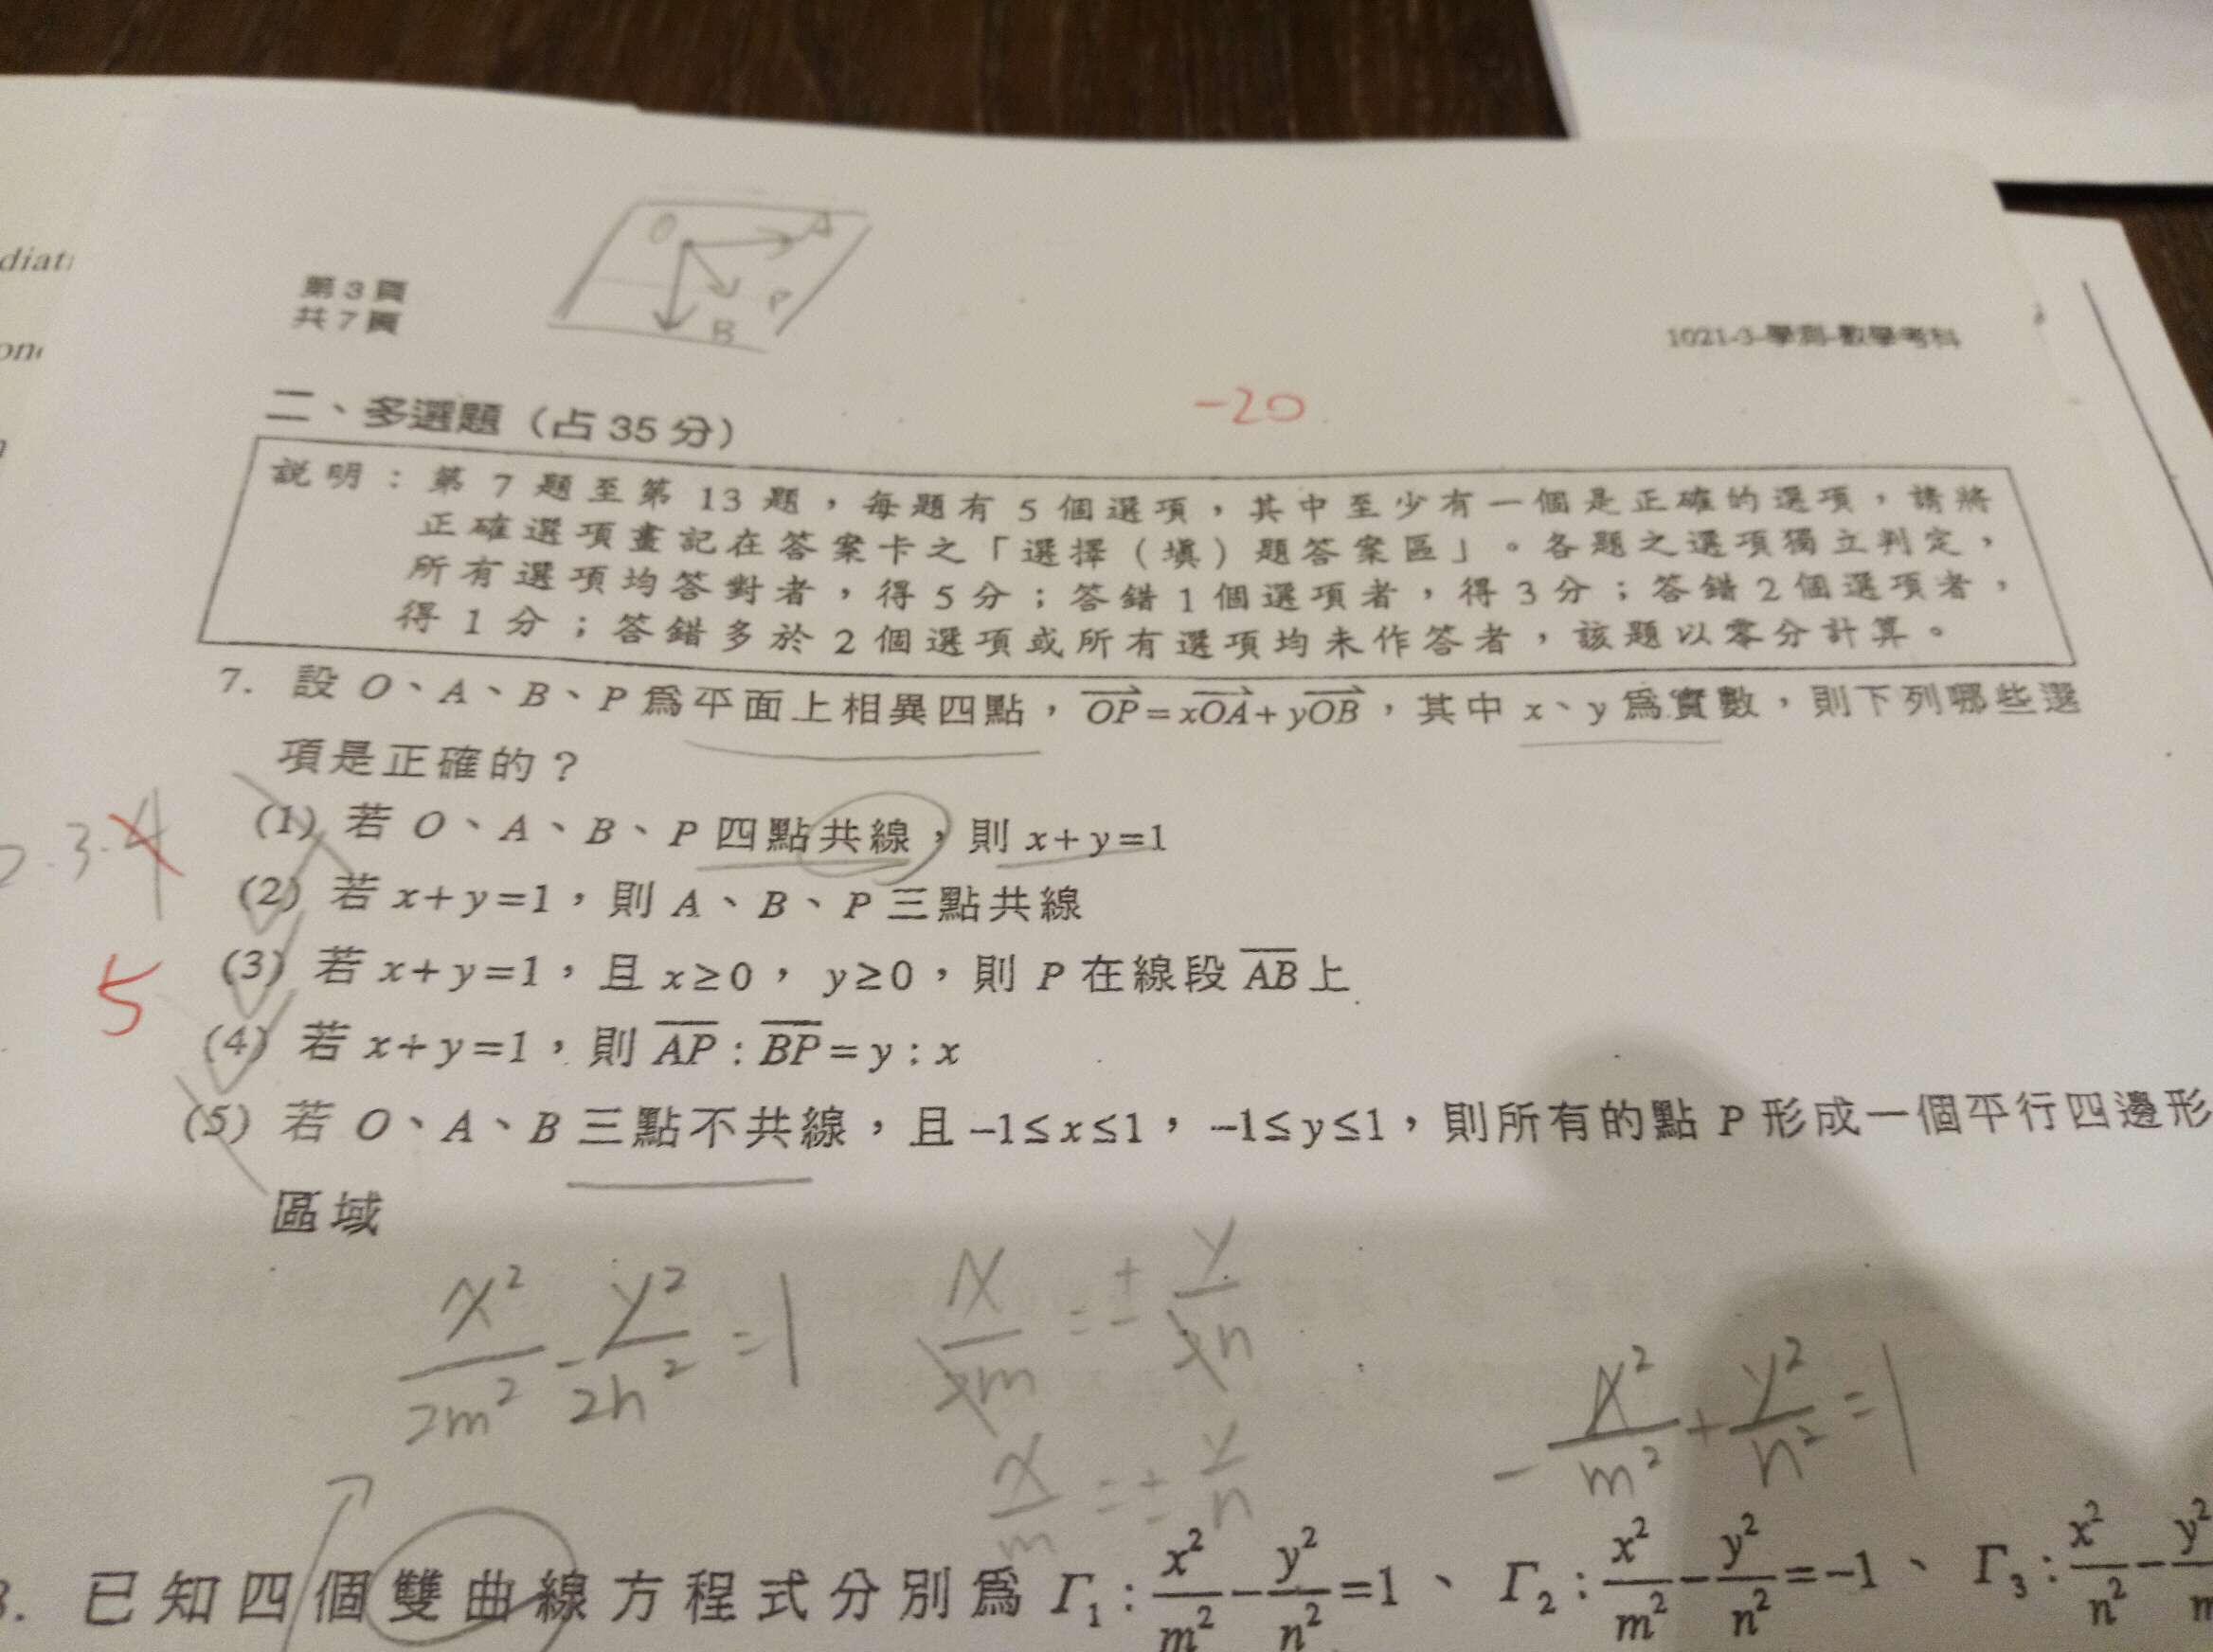 diati
one
第3頁
共7頁
O
A
P
B
1021-3-學測-數學考科
-20
二、多選題（占35分）
説明：第7題至第13題，每題有5個選項，其中至少有一個是正確的選項，請將
正確選項畫記在答案卡之「選擇（填）題答案區」。各題之選項獨立判定，
所有選項均答對者，得5分；答錯1個選項者，得3分；答錯2個選項者，
得1分；答錯多於2個選項或所有選項均未作答者，該題以零分計算。
7. 設 O、A、B、P 為平面上相異四點，OP=xOA+yOB，其中 x、y 為實數，則下列哪些選
項是正確的？
(1) 若 O、A、B、P 四點共線，則 x+y=1
2.3.4
(2) 若 x+y=1，則 A、B、P 三點共線
(3) 若 x+y=1，且 x≥0，y≥0，則 P 在線段 AB 上
5
(4) 若 x+y=1，則 AP:BP=y:x
(5) 若 O、A、B 三點不共線，且 -1≤x≤1，-1≤y≤1，則所有的點 P 形成一個平行四邊形
區域
x²/2m² - y²/2n² = 1
x/m = ± y/n
-x²/m² + y²/n² = 1
x/m = ± y/n
8. 已知四個雙曲線方程式分別為 Γ₁: x²/m² - y²/n² = 1、Γ₂: x²/m² - y²/n² = -1、Γ₃: x²/n² - y²/m